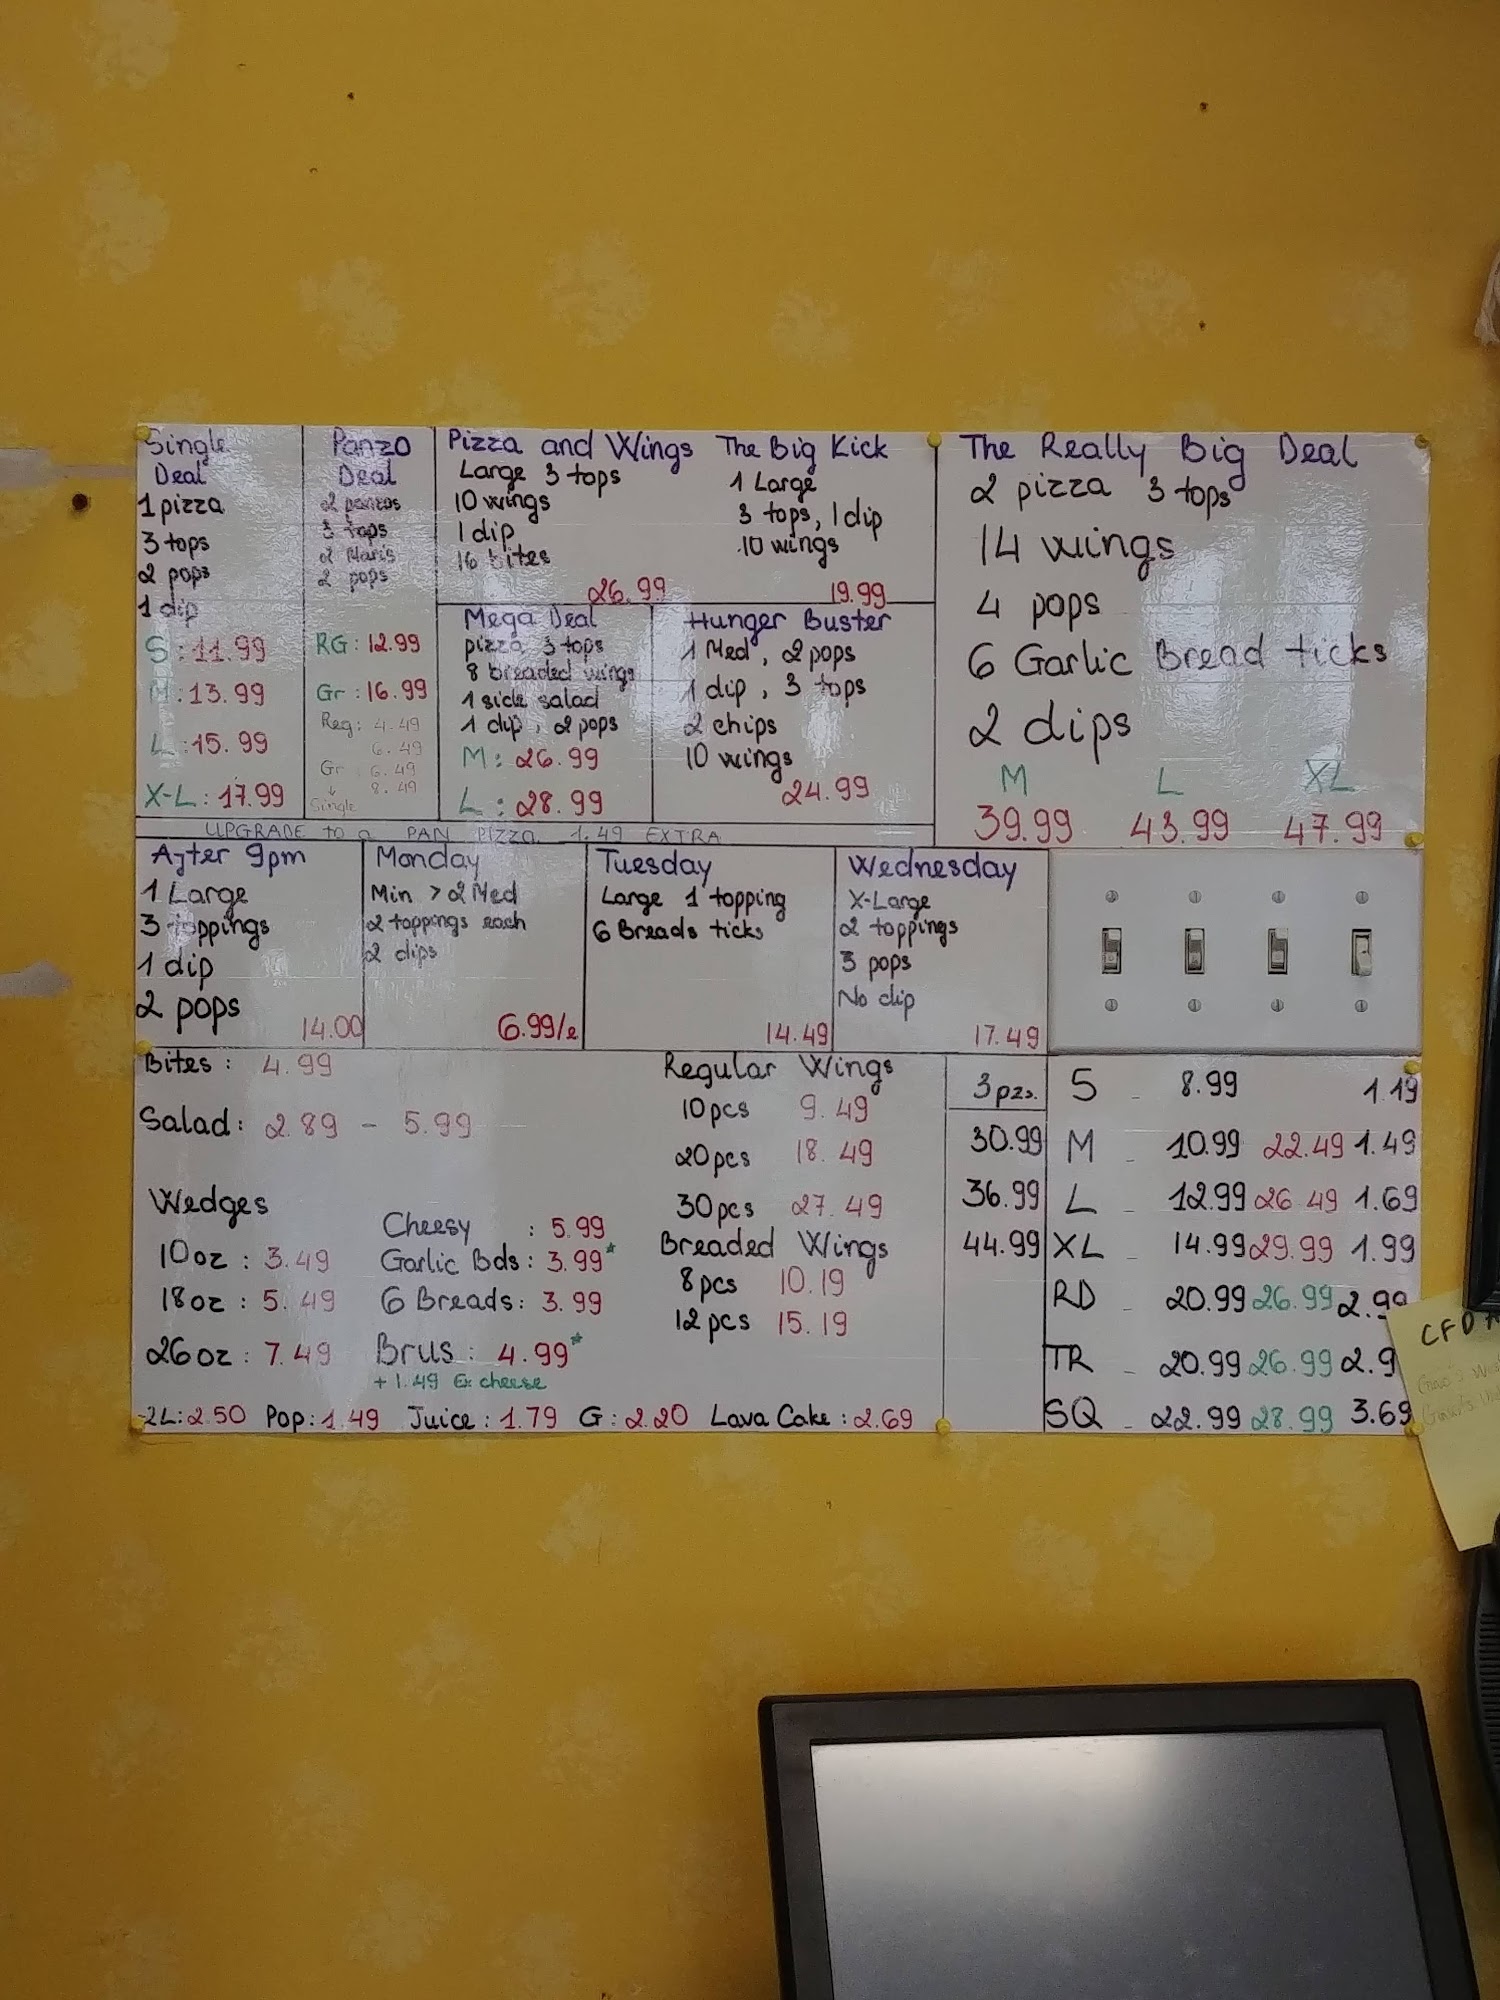 Single
Deal
1 pizza
3 tops
2 pops
1 dip
S : 11.99
M : 13.99
L : 15.99
X-L : 17.99
Panzo
Deal
2 panzos
3 tops
2 Maris
2 pops
RG : 12.99
Gr : 16.99
Reg : 4.49
6.49
Gr : 6.49
↓ 8.49
Single
Pizza and Wings
Large 3 tops
10 wings
1 dip
16 bites
26.99
The Big Kick
1 Large
3 tops, 1 dip
10 wings
19.99
Mega Deal
pizza 3 tops
8 breaded wings
1 side salad
1 dip, 2 pops
M : 26.99
L : 28.99
Hunger Buster
1 Med, 2 pops
1 dip, 3 tops
2 chips
10 wings
24.99
The Really Big Deal
2 pizza 3 tops
14 wings
4 pops
6 Garlic Bread ticks
2 dips
M L XL
39.99 43.99 47.99
UPGRADE to a PAN PIZZA 1.49 EXTRA
After 9pm
1 Large
3 toppings
1 dip
2 pops
14.00
Monday
Min > 2 Med
2 toppings each
2 dips
6.99/e
Tuesday
Large 1 topping
6 Breads ticks
14.49
Wednesday
X-Large
2 toppings
3 pops
No dip
17.49
Bites : 4.99
Salad : 2.89 - 5.99
Wedges
10oz : 3.49
18oz : 5.49
26oz : 7.49
Cheesy : 5.99
Garlic Bds : 3.99*
6 Breads : 3.99
Brus : 4.99*
+ 1.49 Ex cheese
Regular Wings
10pcs 9.49
20pcs 18.49
30pcs 27.49
Breaded Wings
8pcs 10.19
12pcs 15.19
2L : 2.50 Pop : 1.49 Juice : 1.79 G : 2.20 Lava Cake : 2.69
3 pzs.
30.99
36.99
44.99
S - 8.99 1.19
M - 10.99 22.49 1.49
L - 12.99 26.49 1.69
XL - 14.99 29.99 1.99
RD - 20.99 26.99 2.99
TR - 20.99 26.99 2.9
SQ - 22.99 28.99 3.69